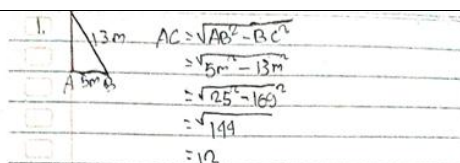 1.
13m
A 5m B
AC = √AB² - BC²
= √5m² - 13m²
= √25² - 169²
= √144
= 12